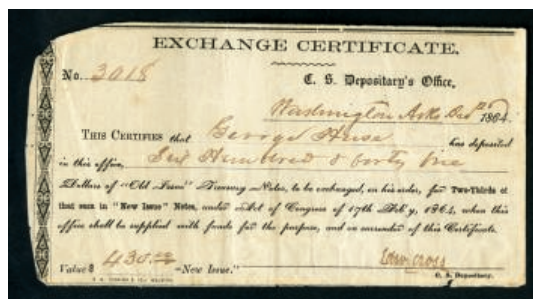 EXCHANGE CERTIFICATE.
No. 3018
C. S. Depositary's Office,
Washington Arks Dec 1864.
THIS CERTIFIES that George has deposited
in this office, Six Hundred & forty one
Dollars of "Old Issue" Treasury Notes, to be exchanged, on his order, for Two-Thirds of
that sum in "New Issue" Notes, under Act of Congress of 17th Feb'y, 1864, when this
office shall be supplied with funds for the purpose, and on surrender of this Certificate.
Value $ 430 —New Issue."
Cross
C. S. Depositary.